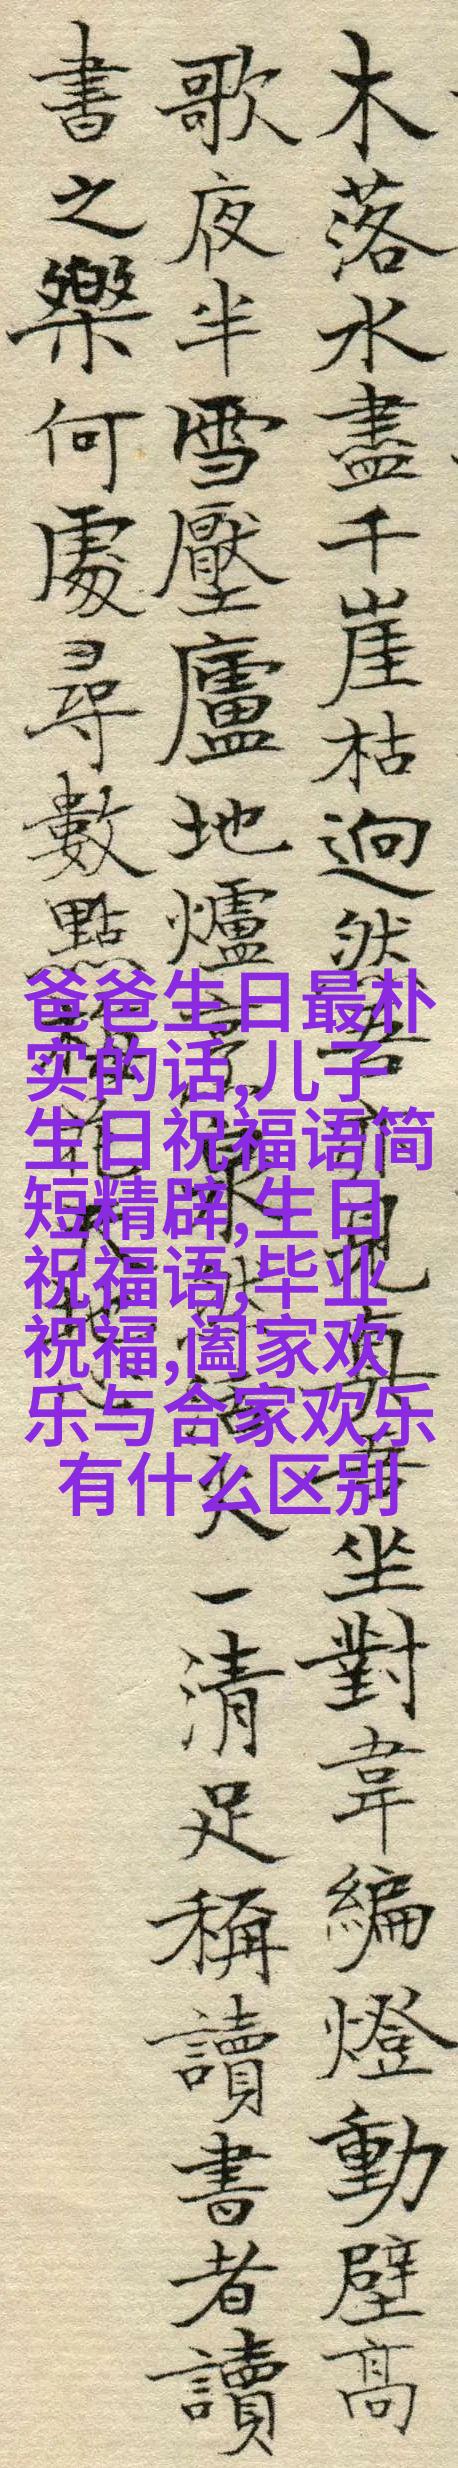 木落水盡千崖枯迥然吾亦見真吾坐對韋編燈動壁高
歌夜半雪壓廬地爐然活火一清足稱讀書者讀
書之樂何處尋數點梅花天地心
爸爸生日最朴
实的话,儿子
生日祝福语简
短精辟,生日
祝福语,毕业
祝福,阖家欢
乐与合家欢乐
有什么区别